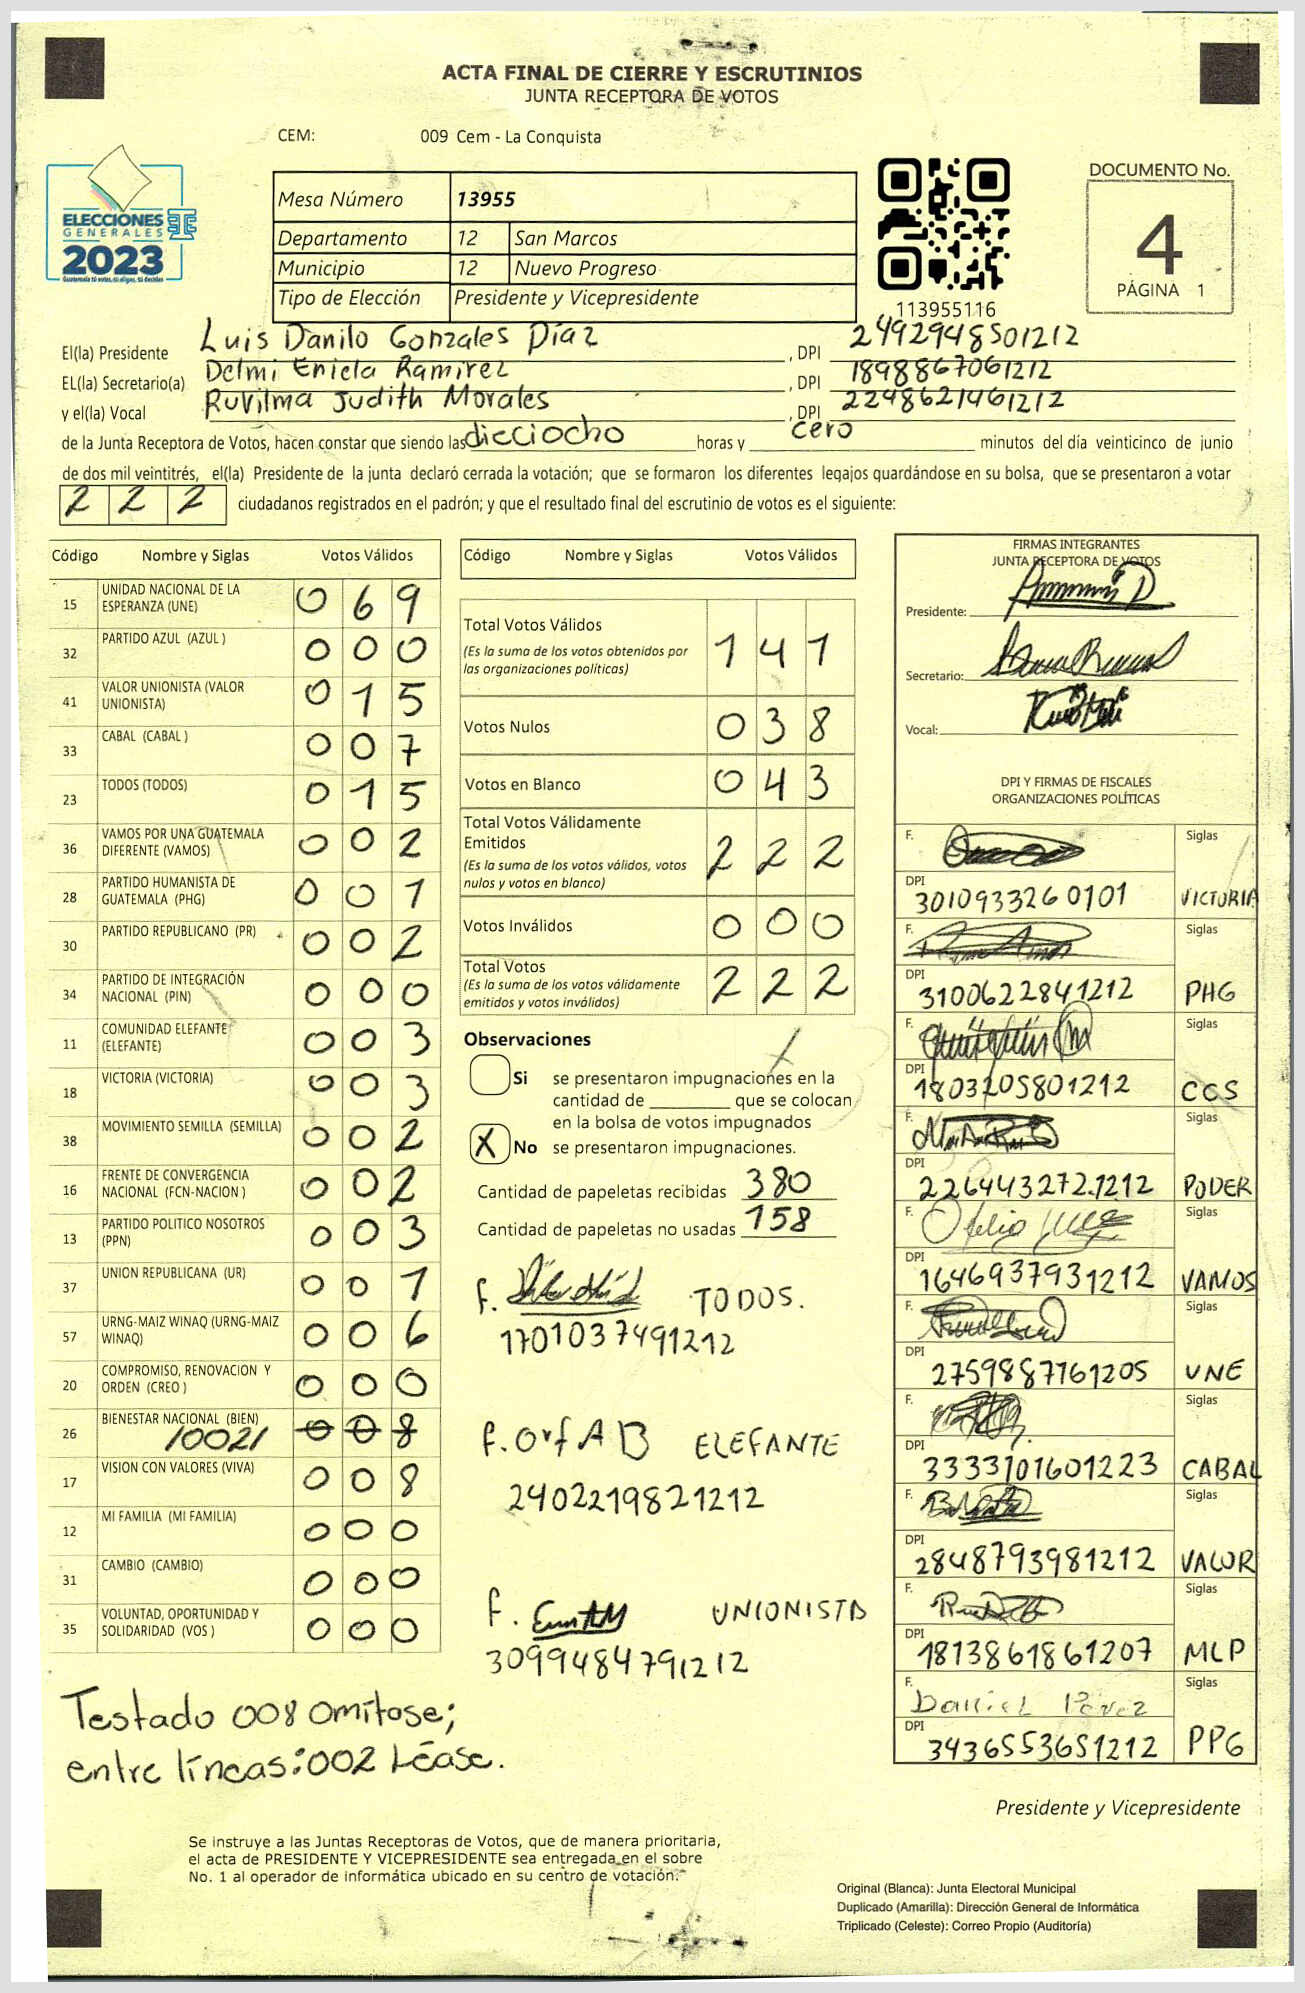 ACTA FINAL DE CIERRE Y ESCRUTINIOS
JUNTA RECEPTORA DE VOTOS
CEM: 009 Cem - La Conquista
ELECCIONES
GENERALES
2023
Guatemala tú votas, tú eliges, tú decides
Mesa Número 13955
Departamento 12 San Marcos
Municipio 12 Nuevo Progreso
Tipo de Elección Presidente y Vicepresidente
113955116
DOCUMENTO No.
4
PÁGINA 1
El(la) Presidente Luis Danilo Gonzales Díaz , DPI 2492948501212
EL(la) Secretario(a) Delmi Eniela Ramirez , DPI 1898867061212
y el(la) Vocal Ruvilma Judith Morales , DPI 2248621461212
de la Junta Receptora de Votos, hacen constar que siendo las dieciocho horas y cero minutos del día veinticinco de junio
de dos mil veintitrés, el(la) Presidente de la junta declaró cerrada la votación; que se formaron los diferentes legajos guardándose en su bolsa, que se presentaron a votar
222 ciudadanos registrados en el padrón; y que el resultado final del escrutinio de votos es el siguiente:
Código Nombre y Siglas Votos Válidos
15 UNIDAD NACIONAL DE LA ESPERANZA (UNE) 069
32 PARTIDO AZUL (AZUL ) 000
41 VALOR UNIONISTA (VALOR UNIONISTA) 015
33 CABAL (CABAL ) 007
23 TODOS (TODOS) 015
36 VAMOS POR UNA GUATEMALA DIFERENTE (VAMOS) 002
28 PARTIDO HUMANISTA DE GUATEMALA (PHG) 001
30 PARTIDO REPUBLICANO (PR) 002
34 PARTIDO DE INTEGRACIÓN NACIONAL (PIN) 000
11 COMUNIDAD ELEFANTE (ELEFANTE) 003
18 VICTORIA (VICTORIA) 003
38 MOVIMIENTO SEMILLA (SEMILLA) 002
16 FRENTE DE CONVERGENCIA NACIONAL (FCN-NACION ) 002
13 PARTIDO POLITICO NOSOTROS (PPN) 003
37 UNION REPUBLICANA (UR) 001
57 URNG-MAIZ WINAQ (URNG-MAIZ WINAQ) 006
20 COMPROMISO, RENOVACION Y ORDEN (CREO ) 000
26 BIENESTAR NACIONAL (BIEN) /002/ 008
17 VISION CON VALORES (VIVA) 008
12 MI FAMILIA (MI FAMILIA) 000
31 CAMBIO (CAMBIO) 000
35 VOLUNTAD, OPORTUNIDAD Y SOLIDARIDAD (VOS ) 000
Testado 008 Omitose;
entre líneas:002 Léase.
Código Nombre y Siglas Votos Válidos
Total Votos Válidos 141
(Es la suma de los votos obtenidos por las organizaciones políticas)
Votos Nulos 038
Votos en Blanco 043
Total Votos Válidamente Emitidos 222
(Es la suma de los votos válidos, votos nulos y votos en blanco)
Votos Inválidos 000
Total Votos 222
(Es la suma de los votos válidamente emitidos y votos inválidos)
Observaciones
Si se presentaron impugnaciones en la
cantidad de ________ que se colocan
en la bolsa de votos impugnados
X No se presentaron impugnaciones.
Cantidad de papeletas recibidas 380
Cantidad de papeletas no usadas 158
f. TODOS.
1701037491212
f. ELEFANTE
2402219821212
f. UNIONISTA
3099484791212
FIRMAS INTEGRANTES
JUNTA RECEPTORA DE VOTOS
Presidente:
Secretario:
Vocal:
DPI Y FIRMAS DE FISCALES
ORGANIZACIONES POLÍTICAS
F. Siglas
DPI 3010933260101 VICTORIA
F. Siglas
DPI 3100622841212 PHG
F. Siglas
DPI 1803205801212 CCS
F. Siglas
DPI 2264432721212 PODER
F. Siglas
DPI 1646937931212 VAMOS
F. Siglas
DPI 2759887761205 UNE
F. Siglas
DPI 3333101601223 CABAL
F. Siglas
DPI 2848793981212 VALOR
F. Siglas
DPI 1813861861207 MLP
F. Daniel Pérez Siglas
DPI 3436553651212 PPG
Presidente y Vicepresidente
Se instruye a las Juntas Receptoras de Votos, que de manera prioritaria,
el acta de PRESIDENTE Y VICEPRESIDENTE sea entregada en el sobre
No. 1 al operador de informática ubicado en su centro de votación.
Original (Blanca): Junta Electoral Municipal
Duplicado (Amarilla): Dirección General de Informática
Triplicado (Celeste): Correo Propio (Auditoría)